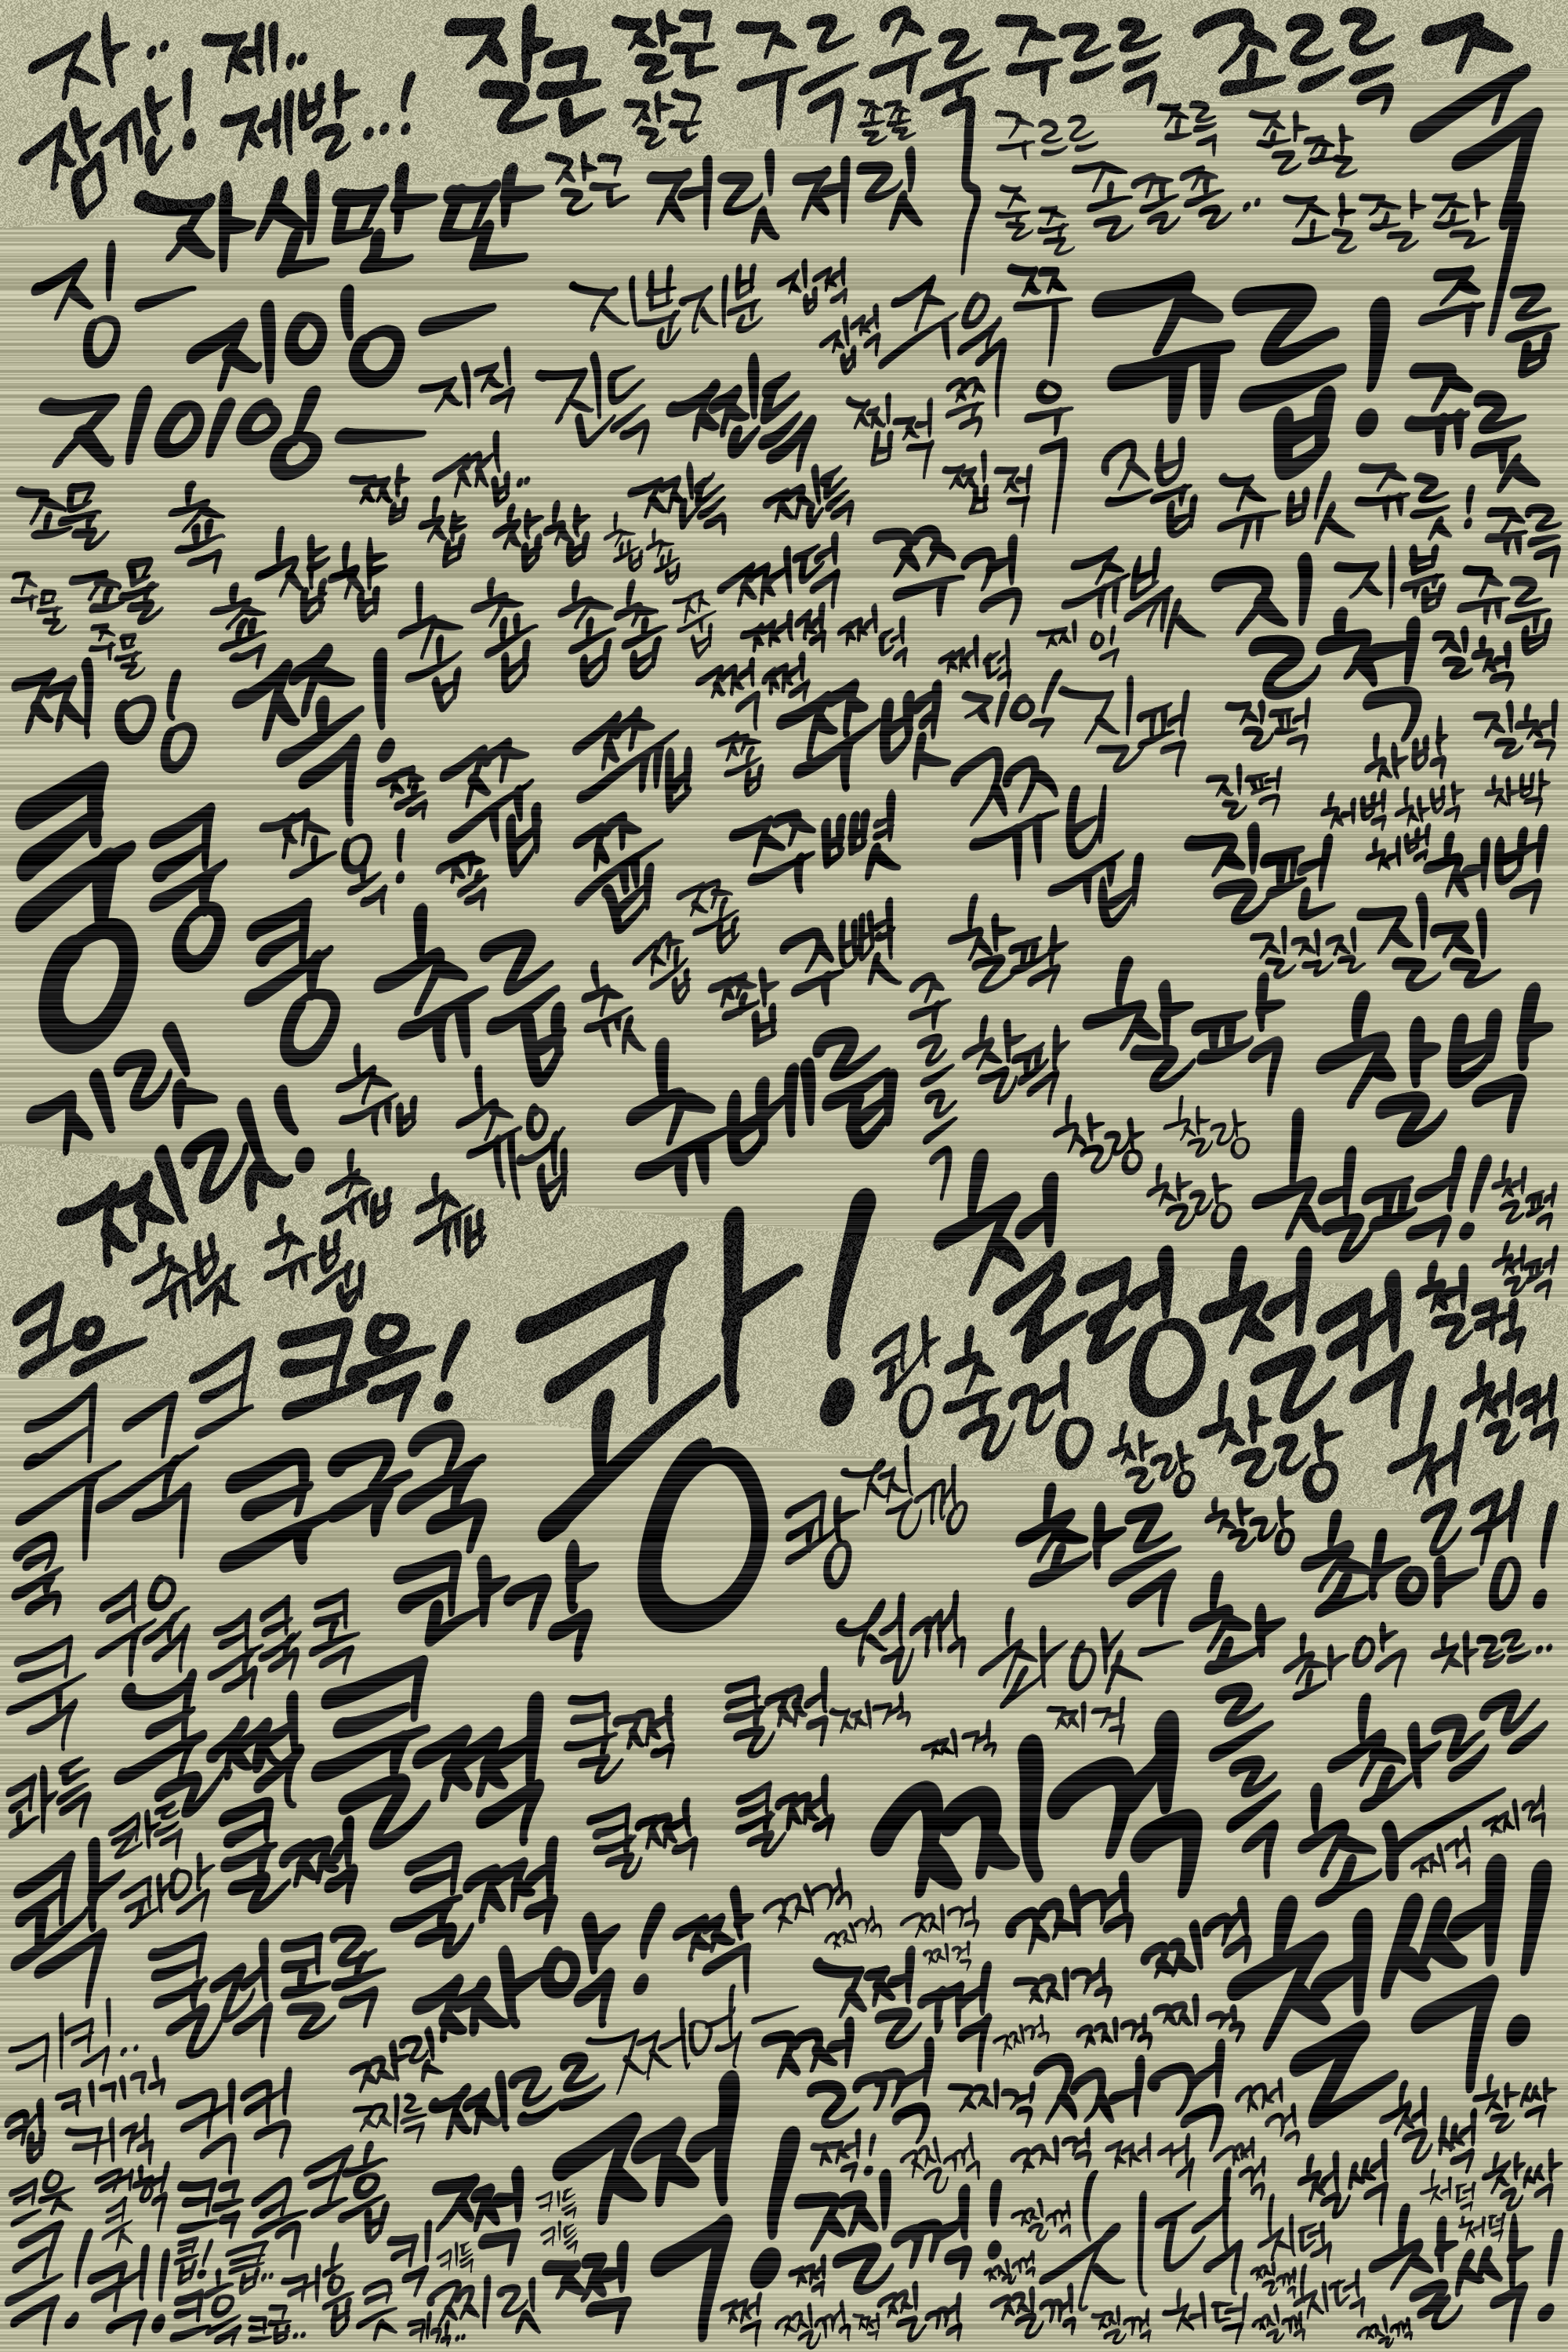 자.. 제.. 잘근 잘근 주륵 주룩 주르륵 조르륵 죽
잠깐! 제발...! 잘근 졸졸 주르르 조륵 좔좔
자신만만 잘근 저릿저릿 줄줄 졸졸졸.. 좔좔좔
징— 지잉— 지분지분 집적 집적 주욱 쭈욱 쥬릅! 쥬릅
지이잉— 지직 진득 찐득 찝적 쭉 쥬륫
조물 쵹 짭 쩝.. 찐득 찐득 찝적 즈붑 쥬빗 쥬릇! 쥬륵
주물 조물 쵹 챱챱 챱 찹찹 춉춉 쩌덕 쭈걱 쥬븃 질척 지븁 쥬륩
주물 춉 춉 춉춉 쭙 쩌적 쩌덕 쩌덕 찌익 질척
찌잉 쪽! 쩍쩍 쥬볏 지익 질퍽 질퍽 차박 질척
쿵 쿵 쪽 쭙 쯔업 쫍 쥬븁 질퍽 처벅 차박 차박
쪼옥! 쪽 쭙 쭈뼛 질펀 처벅 처벅
쿵 츄릅 츄릇 쫍 쭙 쫩 주뼛 찰팍 질질질 질질
지릿 츄릅 츄읍 츄베릅 주르륵 찰팍 찰팍 찰박
찌릿! 츄읍 츄읍 찰랑 찰랑 찰랑 철퍽! 철퍽
츄븃 츄븁 쾅! 철렁 철컥 철컥 철퍽
크으 크윽! 쾅 출렁 찰랑 찰랑 철컥
쿠구국 쿠구국 쾅 찐겅 촤륵 찰랑 철컹!
쿡 쿠욱 쿡쿡 콕 콰각 철꺽 촤앗— 촤르륵 촤아! 촤악 차르르..
쿡 쿨쩍 쿨쩍 쿨쩍 쿨쩍 찌걱 찌걱 찌걱 촤르르
콰득 콰득 쿨쩍 쿨쩍 쿨쩍 쿨쩍 찌걱 촤 찌걱 찌걱
콱 콰악 쿨럭 콜록 짜악! 짝 짜걱 찌걱 찌걱 찌걱 짜걱 찌걱 철썩!
키킥.. 짜릿 쩌억— 쩔꺽 찌걱 찌걱 찌걱 찌걱
킵 키기긱 키걱 킥킥 찌릇 찌르르 쩔꺽 찌걱 쩌걱 쩌걱 철썩 찰싹
크읏 커헉 크극 큭 크흡 쩍 키득 쩍! 쩍! 찔꺽 찌걱 쩌걱 쩌걱 철썩 처덕 찰싹
큭! 컥! 큿 큽! 큽.. 킥 키득 키득 찔꺽! 찔꺽 치덕 치덕 처덕 찰싹!
크흑 크급.. 커흡 큿 키긱.. 찌릿 쩍 쩍 쩍 찔꺽 쩍 찔꺽 찔꺽 찔꺽 찔꺽 처덕 찔꺽 찔꺽 치덕 찔꺽